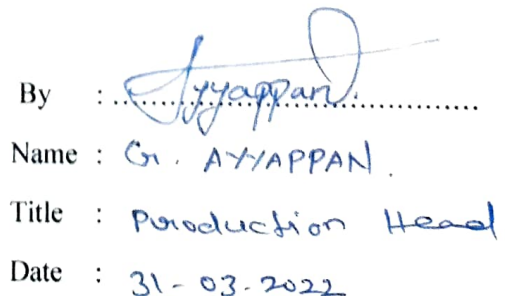 By : Ayyappan.
Name : G. AYYAPPAN.
Title : Production Head
Date : 31-03-2022